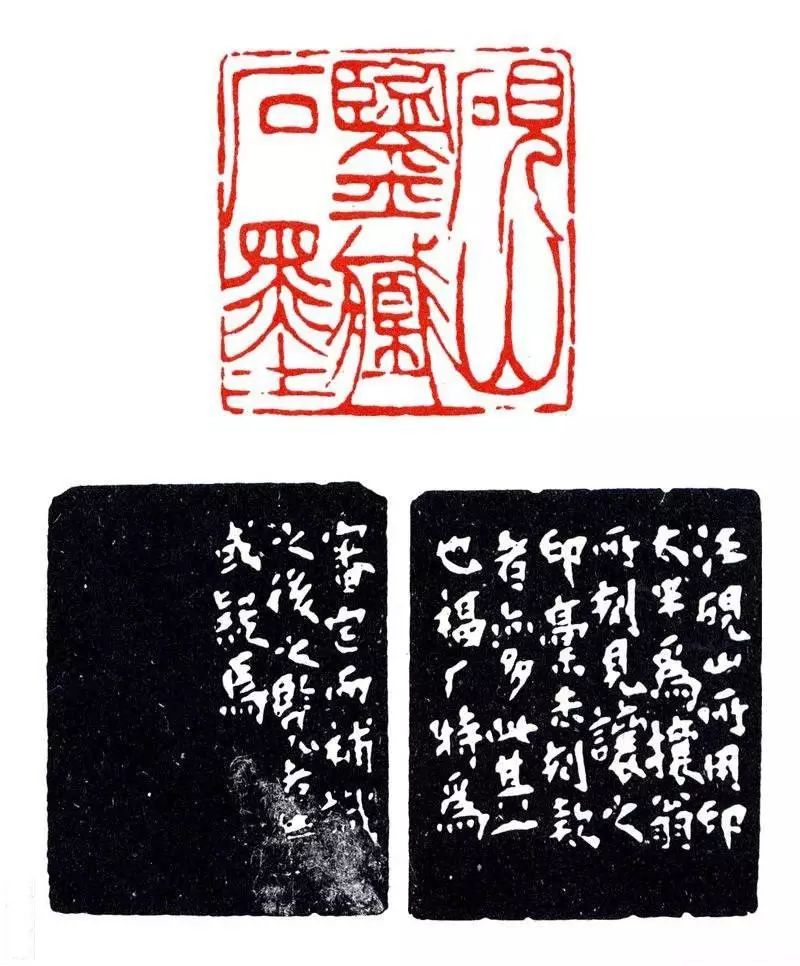 硯山
鑒藏
石墨
汪硯山所用印
太半爲攘翁
所刻見讓之
印稾未刻款
者亦多此其一
也福厂特爲
審定而補識
之後之覽者無
或疑焉